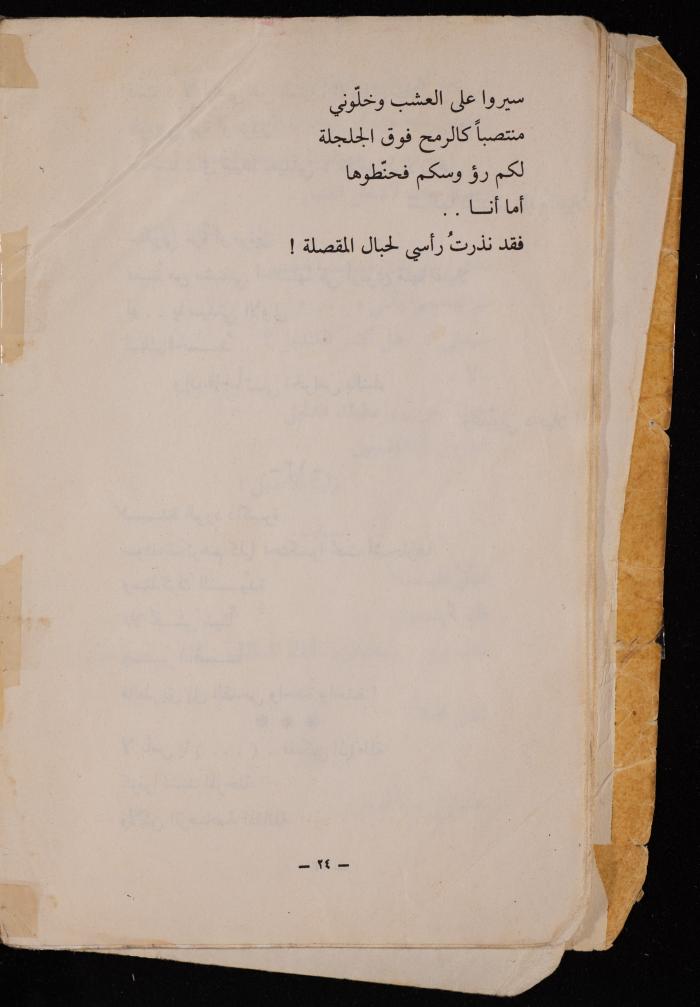 سيروا على العشب وخلّوني
منتصباً كالرمح فوق الجلجلة
لكم رؤ وسكم فحنّطوها
أما أنـــا . .
فقد نذرتُ رأسي لحبال المقصلة !
— ٢٤ —